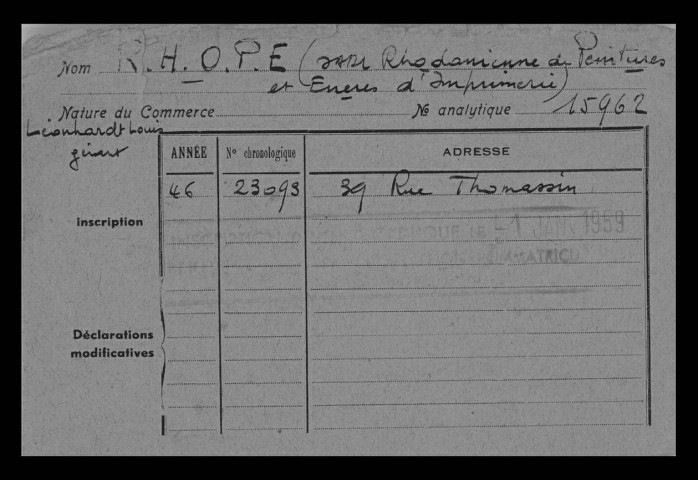 Nom R.H.O.P.E (SARL Rhodanienne de Peintures
et Encres d'Imprimerie)
Nature du Commerce Nº analytique 15962
Léonhardt Louis
gérant
ANNÉE Nº chronologique ADRESSE
46 23093 39 Rue Thomassin
inscription
-1 JANV 1959
IMMATRICU
Déclarations
modificatives